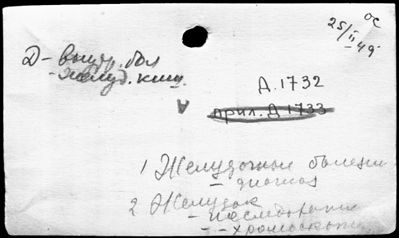 ос
25/II 49
Д - внутр. бол
- желуд. киш.
Д. 1732
прил. Д 1733
1 Желудочные болезни
- диагноз
2 Желудок